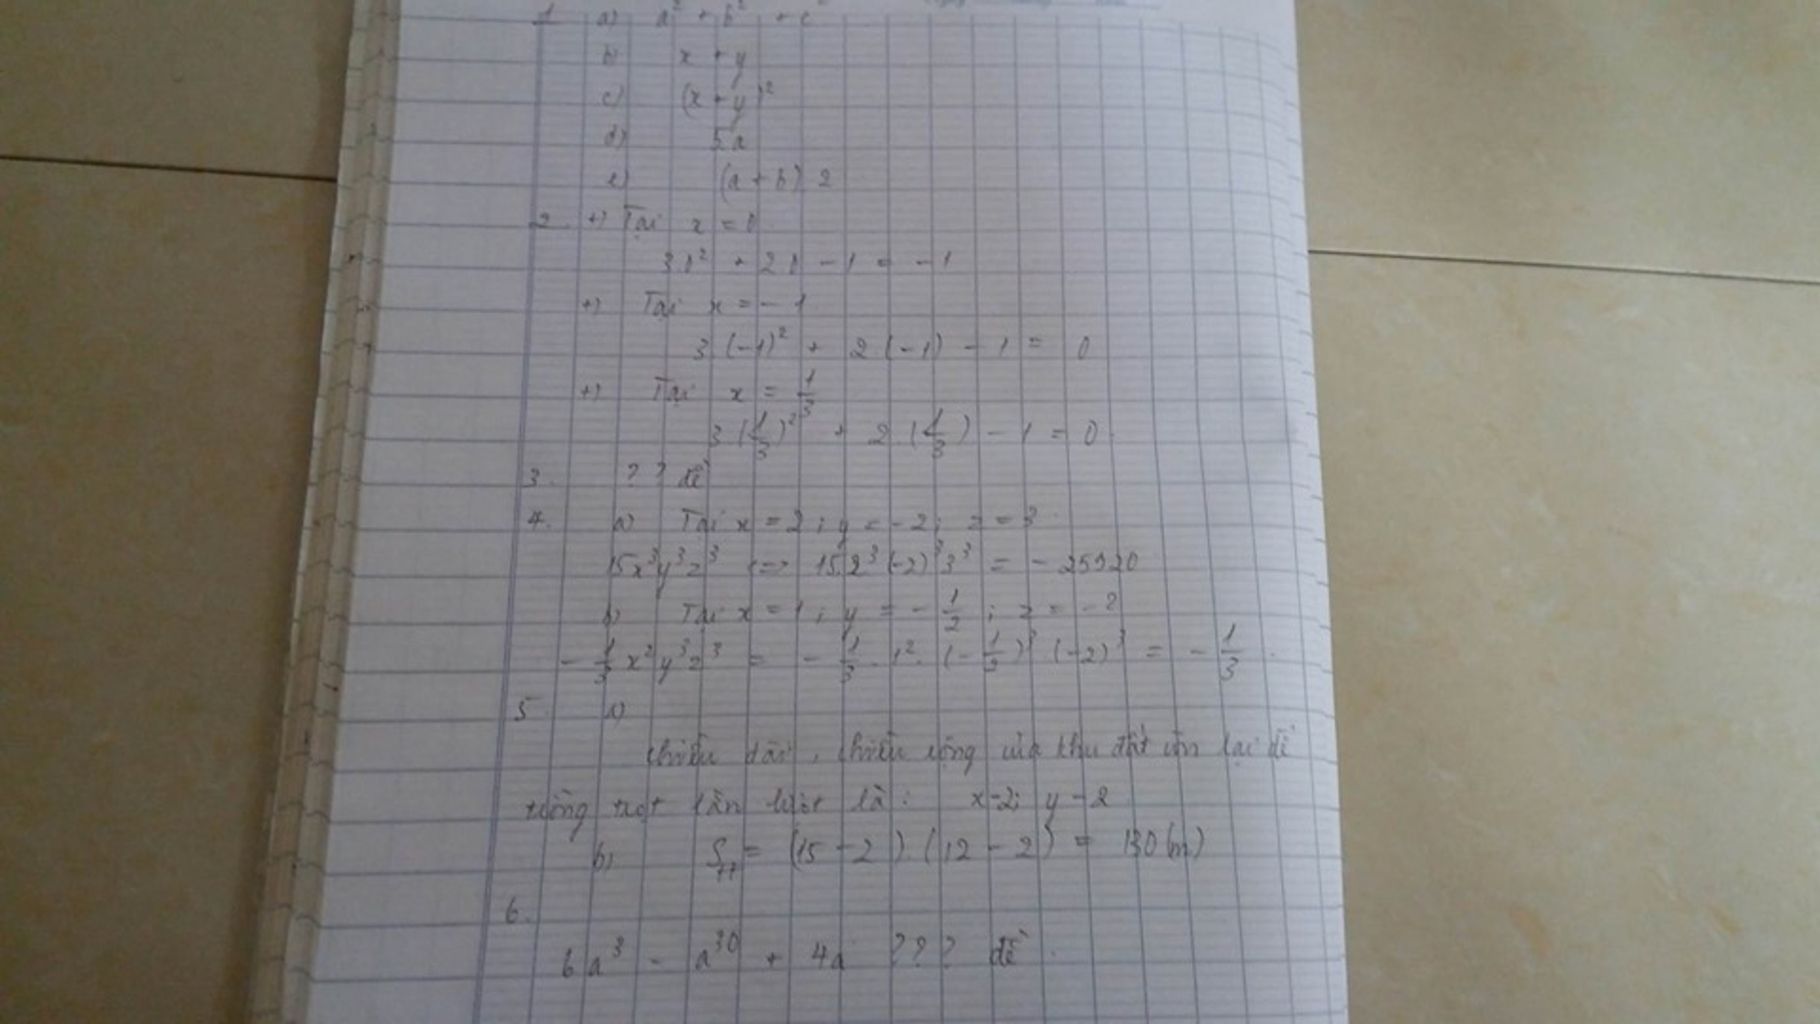 1 a) a² + b² + c
b) x + y
c) (x + y)²
d) 5.a
e) (a + b) 2
2. +) Tại x = 0
3.0² + 2.0 - 1 = -1
+) Tại x = -1
3 (-1)² + 2 (-1) - 1 = 0
+) Tại x = 1/3
3 (1/3)² + 2 (1/3) - 1 = 0
3. ? ? đề
4. a) Tại x = 2 ; y = -2 ; z = 3
15x³y³z³ <=> 15.2³ (-2)³ 3³ = -25920
b) Tại x = 1 ; y = -1/2 ; z = -2
-1/3 x² y³ z³ = -1/3 . 1² . (-1/2)³ (-2)³ = -1/3 .
5. a)
Chiều dài , chiều rộng của khu đất còn lại để
trồng trọt lần lượt là : x-2; y-2
b) S = (15 - 2) . (12 - 2) = 130 (m)
6.
6a³ - a³⁰ + 4a ? ? ? đề .